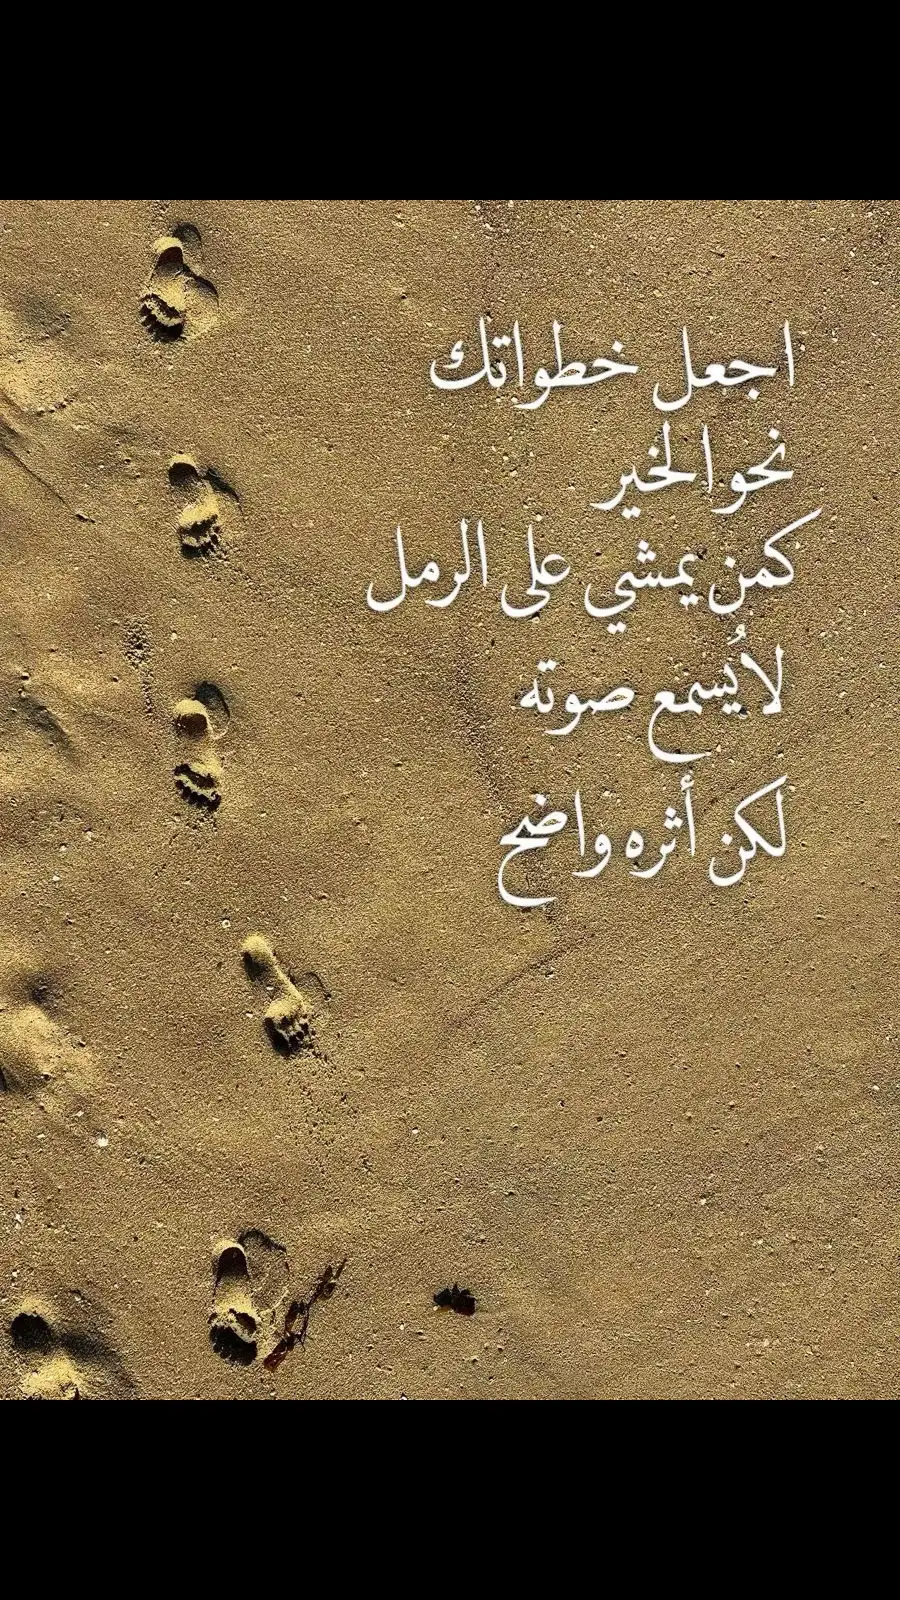 اجعل خطواتك
نحو الخير
كمن يمشي على الرمل
لا يُسمع صوته
لكن أثره واضح